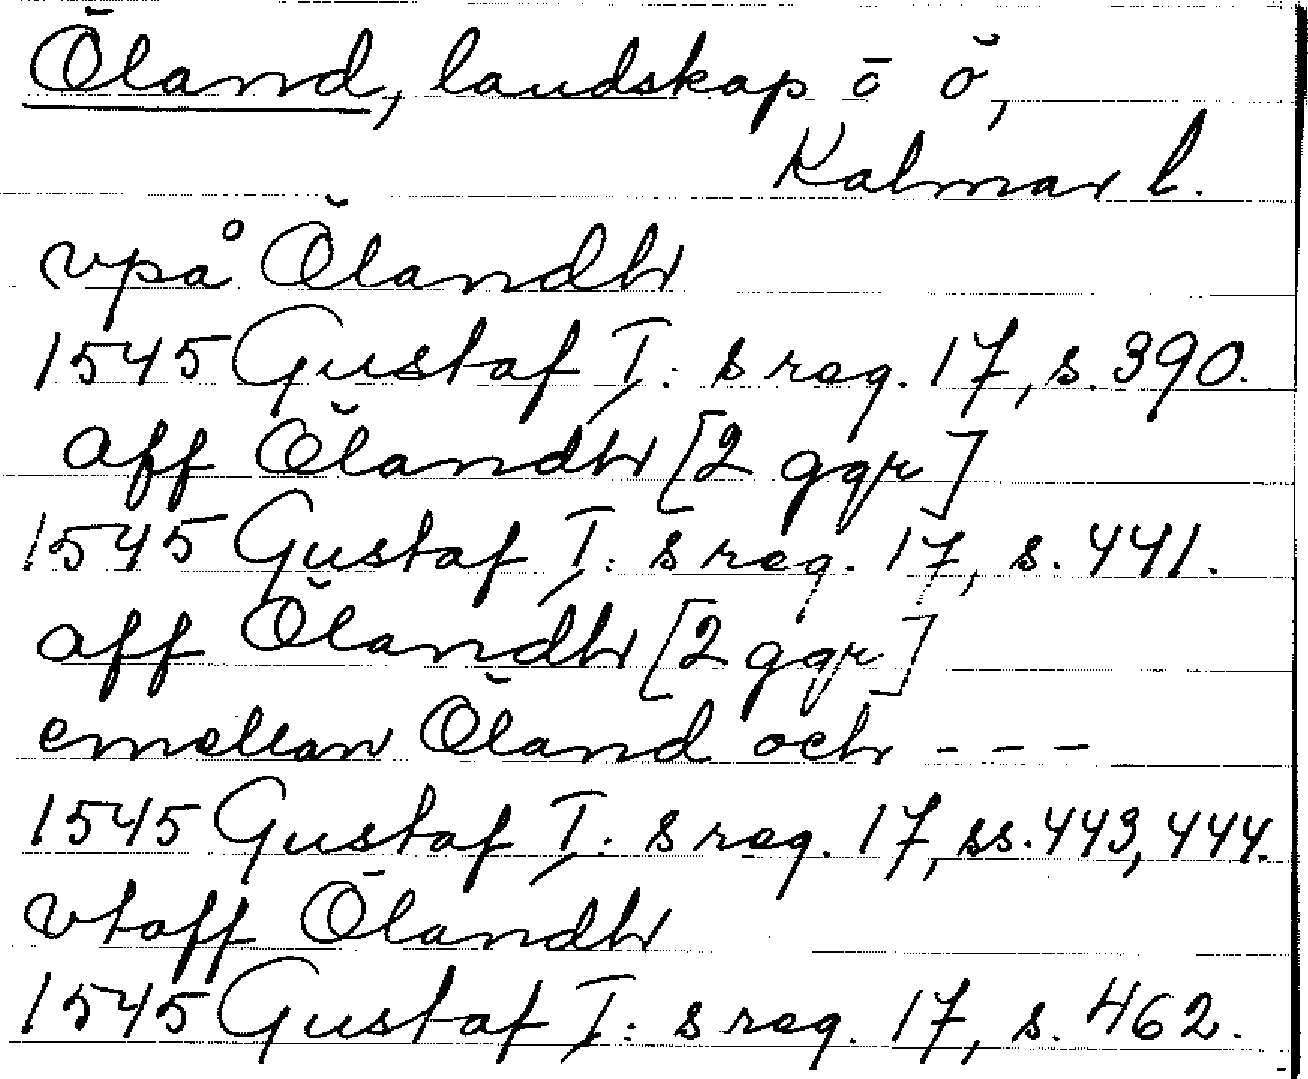 Öland, landskap o ö,
Kalmar l.
vpå Ölandh
1545 Gustaf I: s reg. 17, s. 390.
aff Ölandh [2 ggr]
1545 Gustaf I: s reg. 17, s. 441.
aff Ölandh [2 ggr]
emellan Öland och - - -
1545 Gustaf I: s reg. 17, ss. 443, 444.
vtaff Ölandh
1545 Gustaf I: s reg. 17, s. 462.